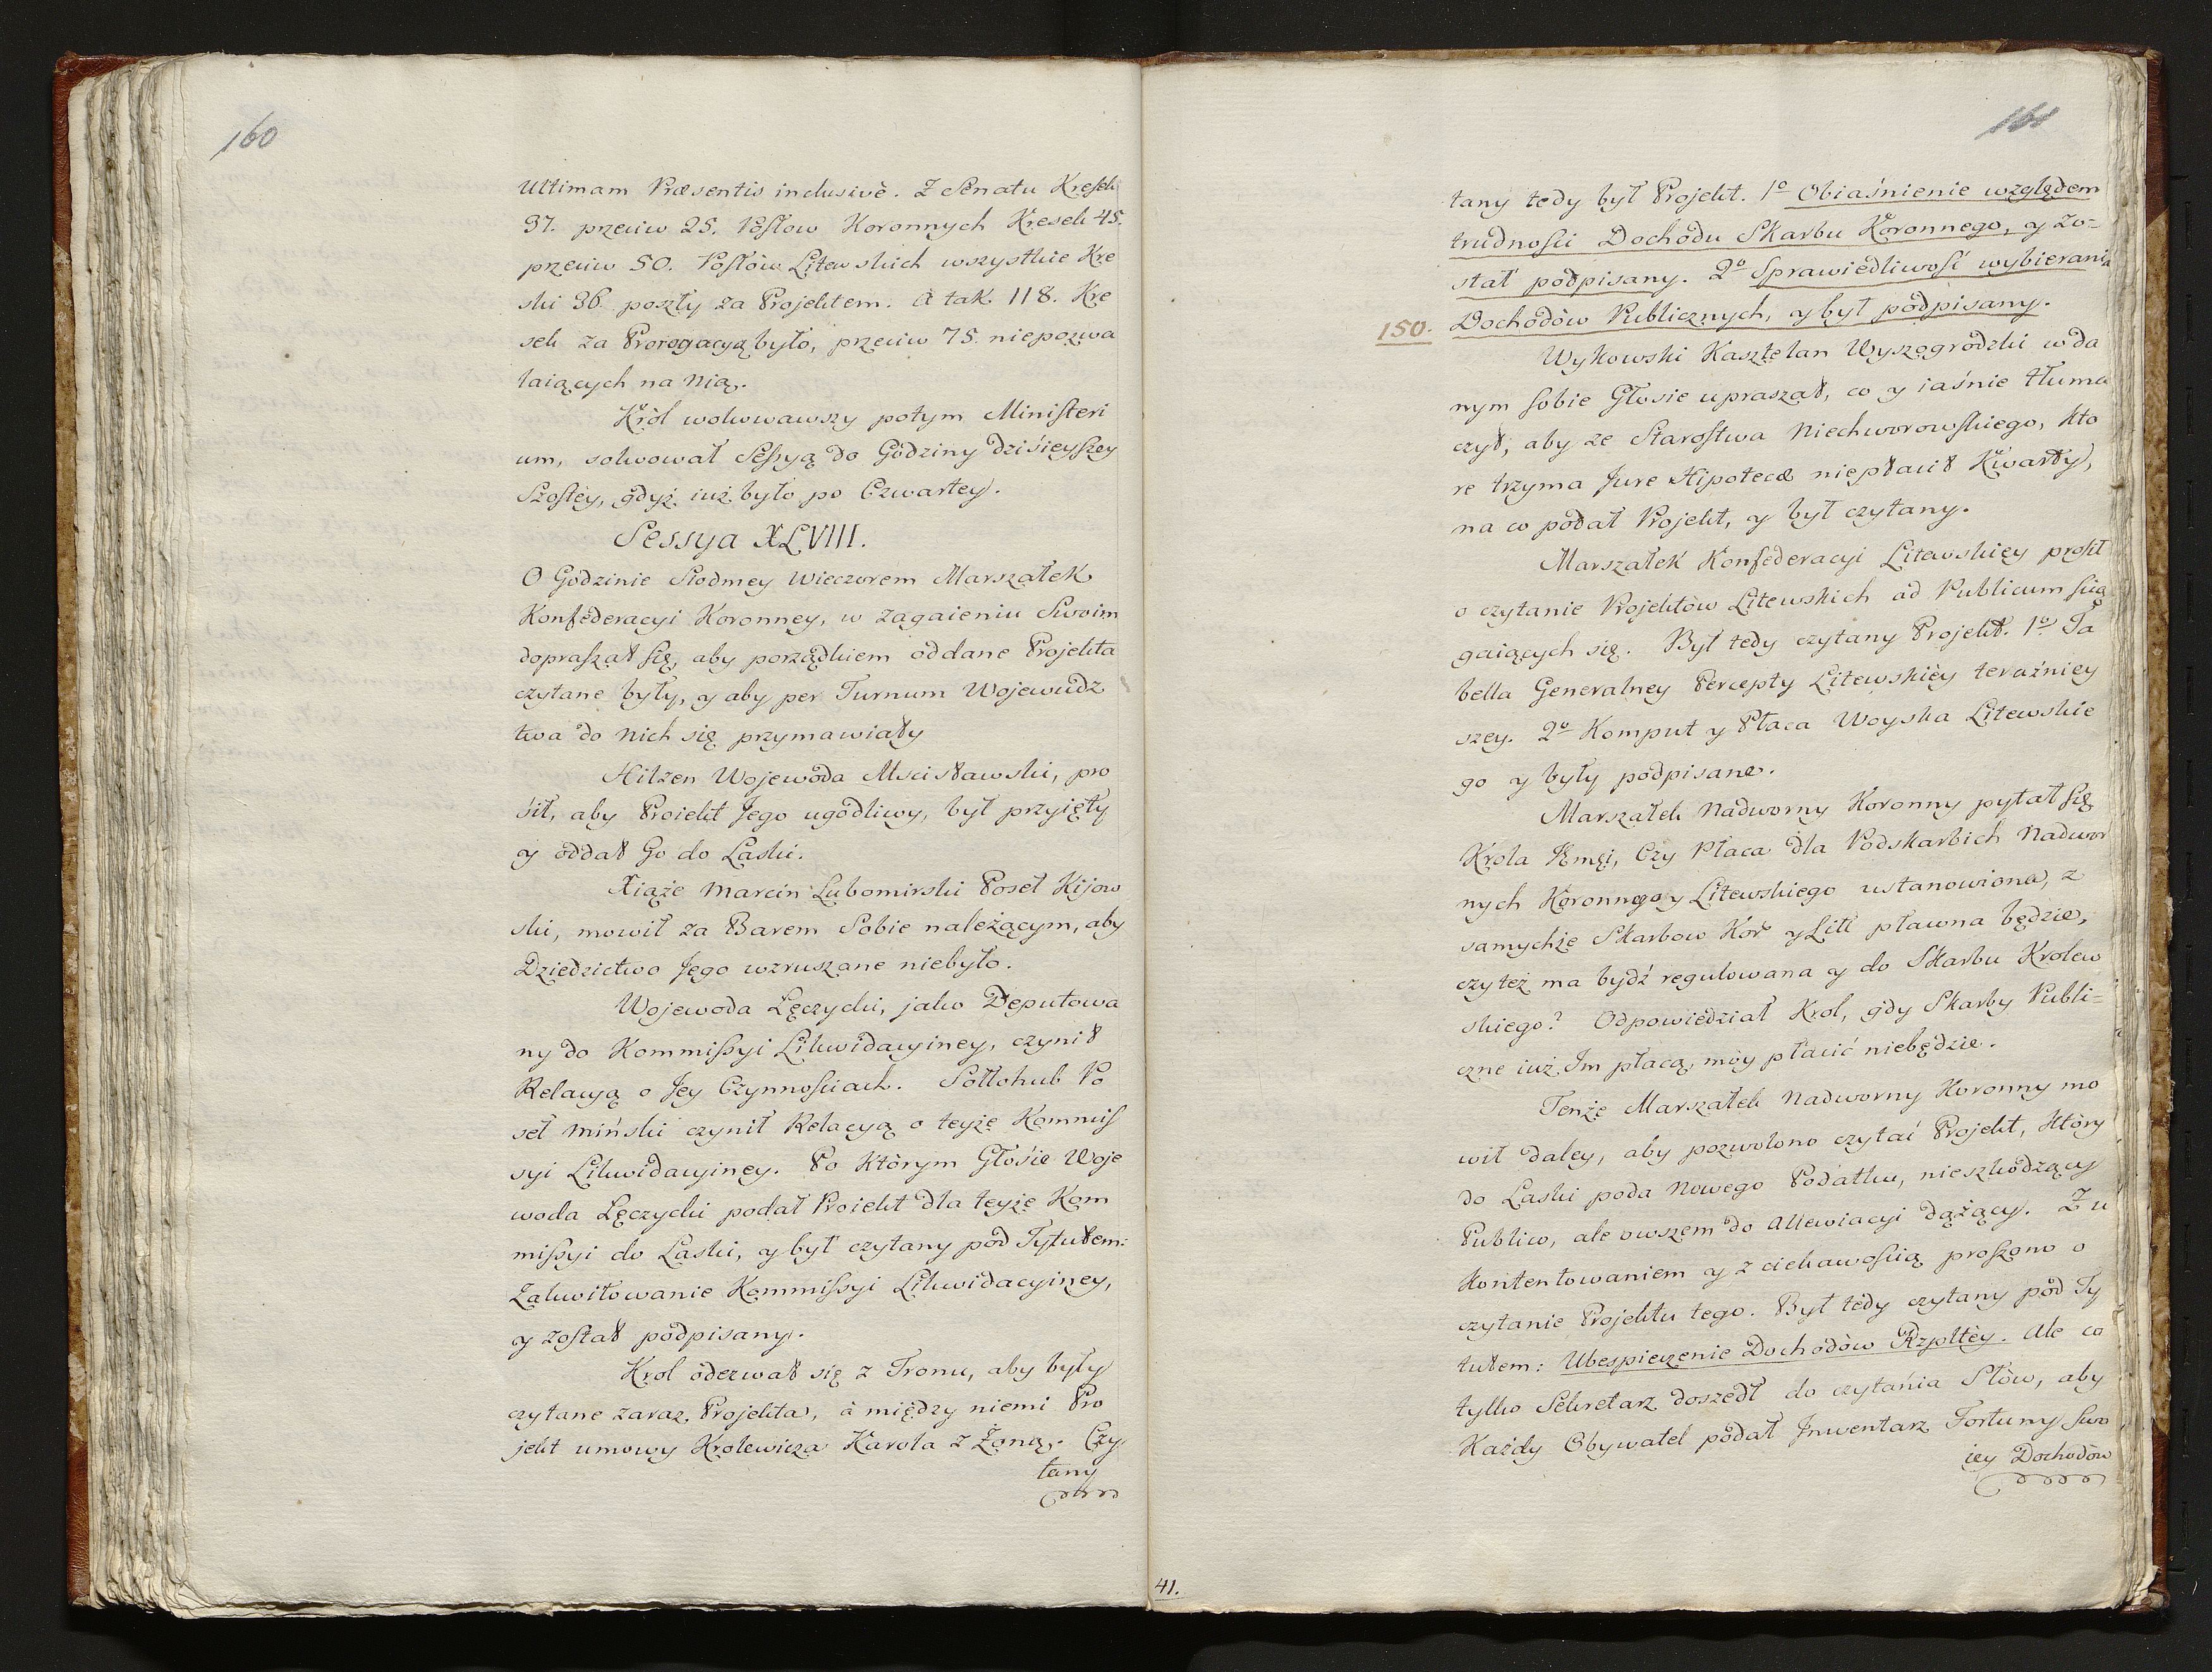 160
Ultimam Præsentis inclusivè. Z Senatu Kresek
37. przeciw 25. Posłow Koronnych Kresek 45.
przeciw 50. Posłòw Litewskich wszystkie Kre
ski 36. poszły za Projektem. A tak 118. Kre
sek za Prorogacyą było, przeciw 75. niepozwa
laiących na Nią.
Kròl wokowawszy potym Ministeri
um, solwował Sessyą do Godziny dzisieyszey
Szostéy, gdyż iuż było po Czwartey.
Sessya XLVIII.
O Godzinie Siodmey Wieczorem Marszałek
Konféderacyi Koronney, w Zagaieniu Swoim
dopraszał się, aby porządkiem oddane Projekta
czytane były, y aby per Turnum Wojewudz
twa do Nich się przymawiały
Hilzen Wojewoda Mscisławski, pro
sił, aby Proiekt Jego ugodliwy, był przyięty
y oddał Go do Laski.
Xiąże Marcin Lubomirski Poseł Kijow
ski, mowił za Barem Sobie należącym, aby
Dziedzictwo Jego wzruszane niebyło.
Wojewoda Łęczycki, jako Deputowa
ny do Kommissyi Likwidacyiney, czynił
Relacyą o Jey Czynnościach. Sołłohub Po
seł Miński czynił Relacyą o teyże Kommis
syi Likwidacyiney. Po Którym Głosie Woje
woda Łęczycki podał Proiekt dla teyże Kom
missyi do Laski, y był czytany pod Tytułem:
Zakwitowanie Kommissyi Likwidacyiney,
y został podpisany.
Krol odezwał się z Tronu, aby były
czytane zaraz Projekta, à między niemi Pro
jekt umowy Krolewicza Karola z Żoną. Czy
tany
161
tany tedy był Projekt. 1º Obiaśnienie względem
trudności Dochodu Skarbu Koronnego, y zo=
stał podpisany. 2º Sprawiedliwość wybierania
150. Dochodòw Publicznych, y był podpisany.
Wykowski Kasztelan Wyszogrodzki w da
nym sobie Głosie upraszał, co y iaśnie tłuma
czył, aby ze Starostwa Niechworowskiego, kto
re trzyma Jure Hipotecæ niepłacił Kwarty,
na co podał Projekt, y był czytany.
Marszałek Konfederacyi Litewskiey prosił
o czytanie Projektòw Litewskich ad Publicum scią
gaiących się. Był tedy czytany Projekt. 1º Ta
bella Generalney Percepty Litewskiéy teraźniey
szey. 2º Komput y Płaca Woyska Litewskie
go y były podpisane.
Marszałek Nadworny Koronny pytał się
Krola Jmci, Czy Płaca dla Podskarbich Nadwor
nych Koronnego y Litewskiego ustanowiona, z
samychże Skarbow Kor y Litt pławna będzie,
czy też ma bydź regulowana y do Skarbu Krolew
skiego? Odpowiedział Krol, gdy Skarby Publi=
czne iuż Im płacą, móy płacić niebędzie.
Tenże Marszałek Nadworny Koronny mo
wił daley, aby pozwolono czytać Projekt, Który
do Laski poda Nowego Podatku, nieszkodzący
Publico, ale owszem do Allewiacyi dążący. Z u
kontentowaniem y z ciekawością proszono o
czytanie Projektu tego. Był tedy czytany pod Ty
tułem: Ubespieczenie Dochodòw Rzpltéy. Ale co
tylko Sekretarz doszedł do czytania Słòw, aby
Każdy Obywatel podał Jnwentarz Fortuny Swo
iey Dochodòw
41.